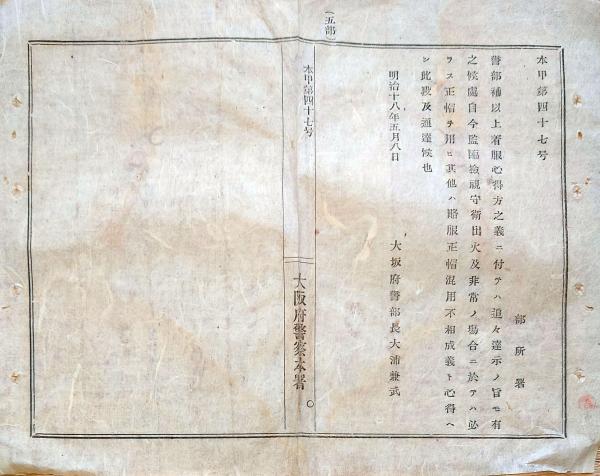 本甲第四十七号
部所署
警部補以上着服心得方之義ニ付テハ追々達示ノ旨モ有
之候處自今監臨撿視守衛出火及非常ノ塲合ニ於テハ必
ラス正帽ヲ用ヒ其他ハ略服正帽混用不相成義ト心得ヘ
シ此段及通達候也
明治十八年五月八日
大坂府警部長大浦兼武
(五部)
本甲第四十七号
大阪府警察本署